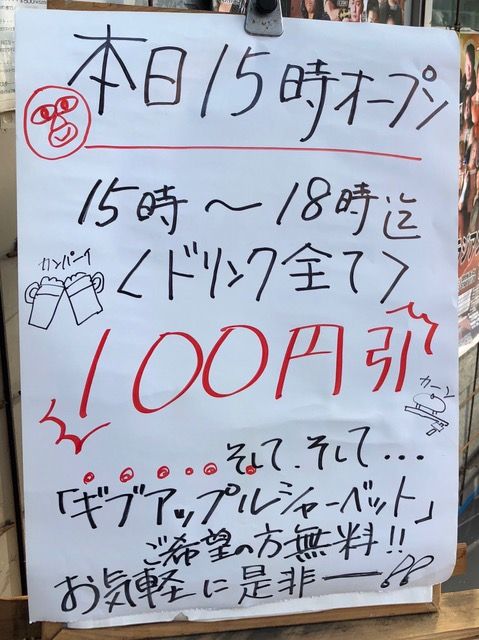 本日15時オープン
15時〜18時迄
カンパーイ
<ドリンク全て>
100円引
カーン
そして、そして・・・
「ギブアップルシャーベット」
ご希望の方無料!!
お気軽に是非ー